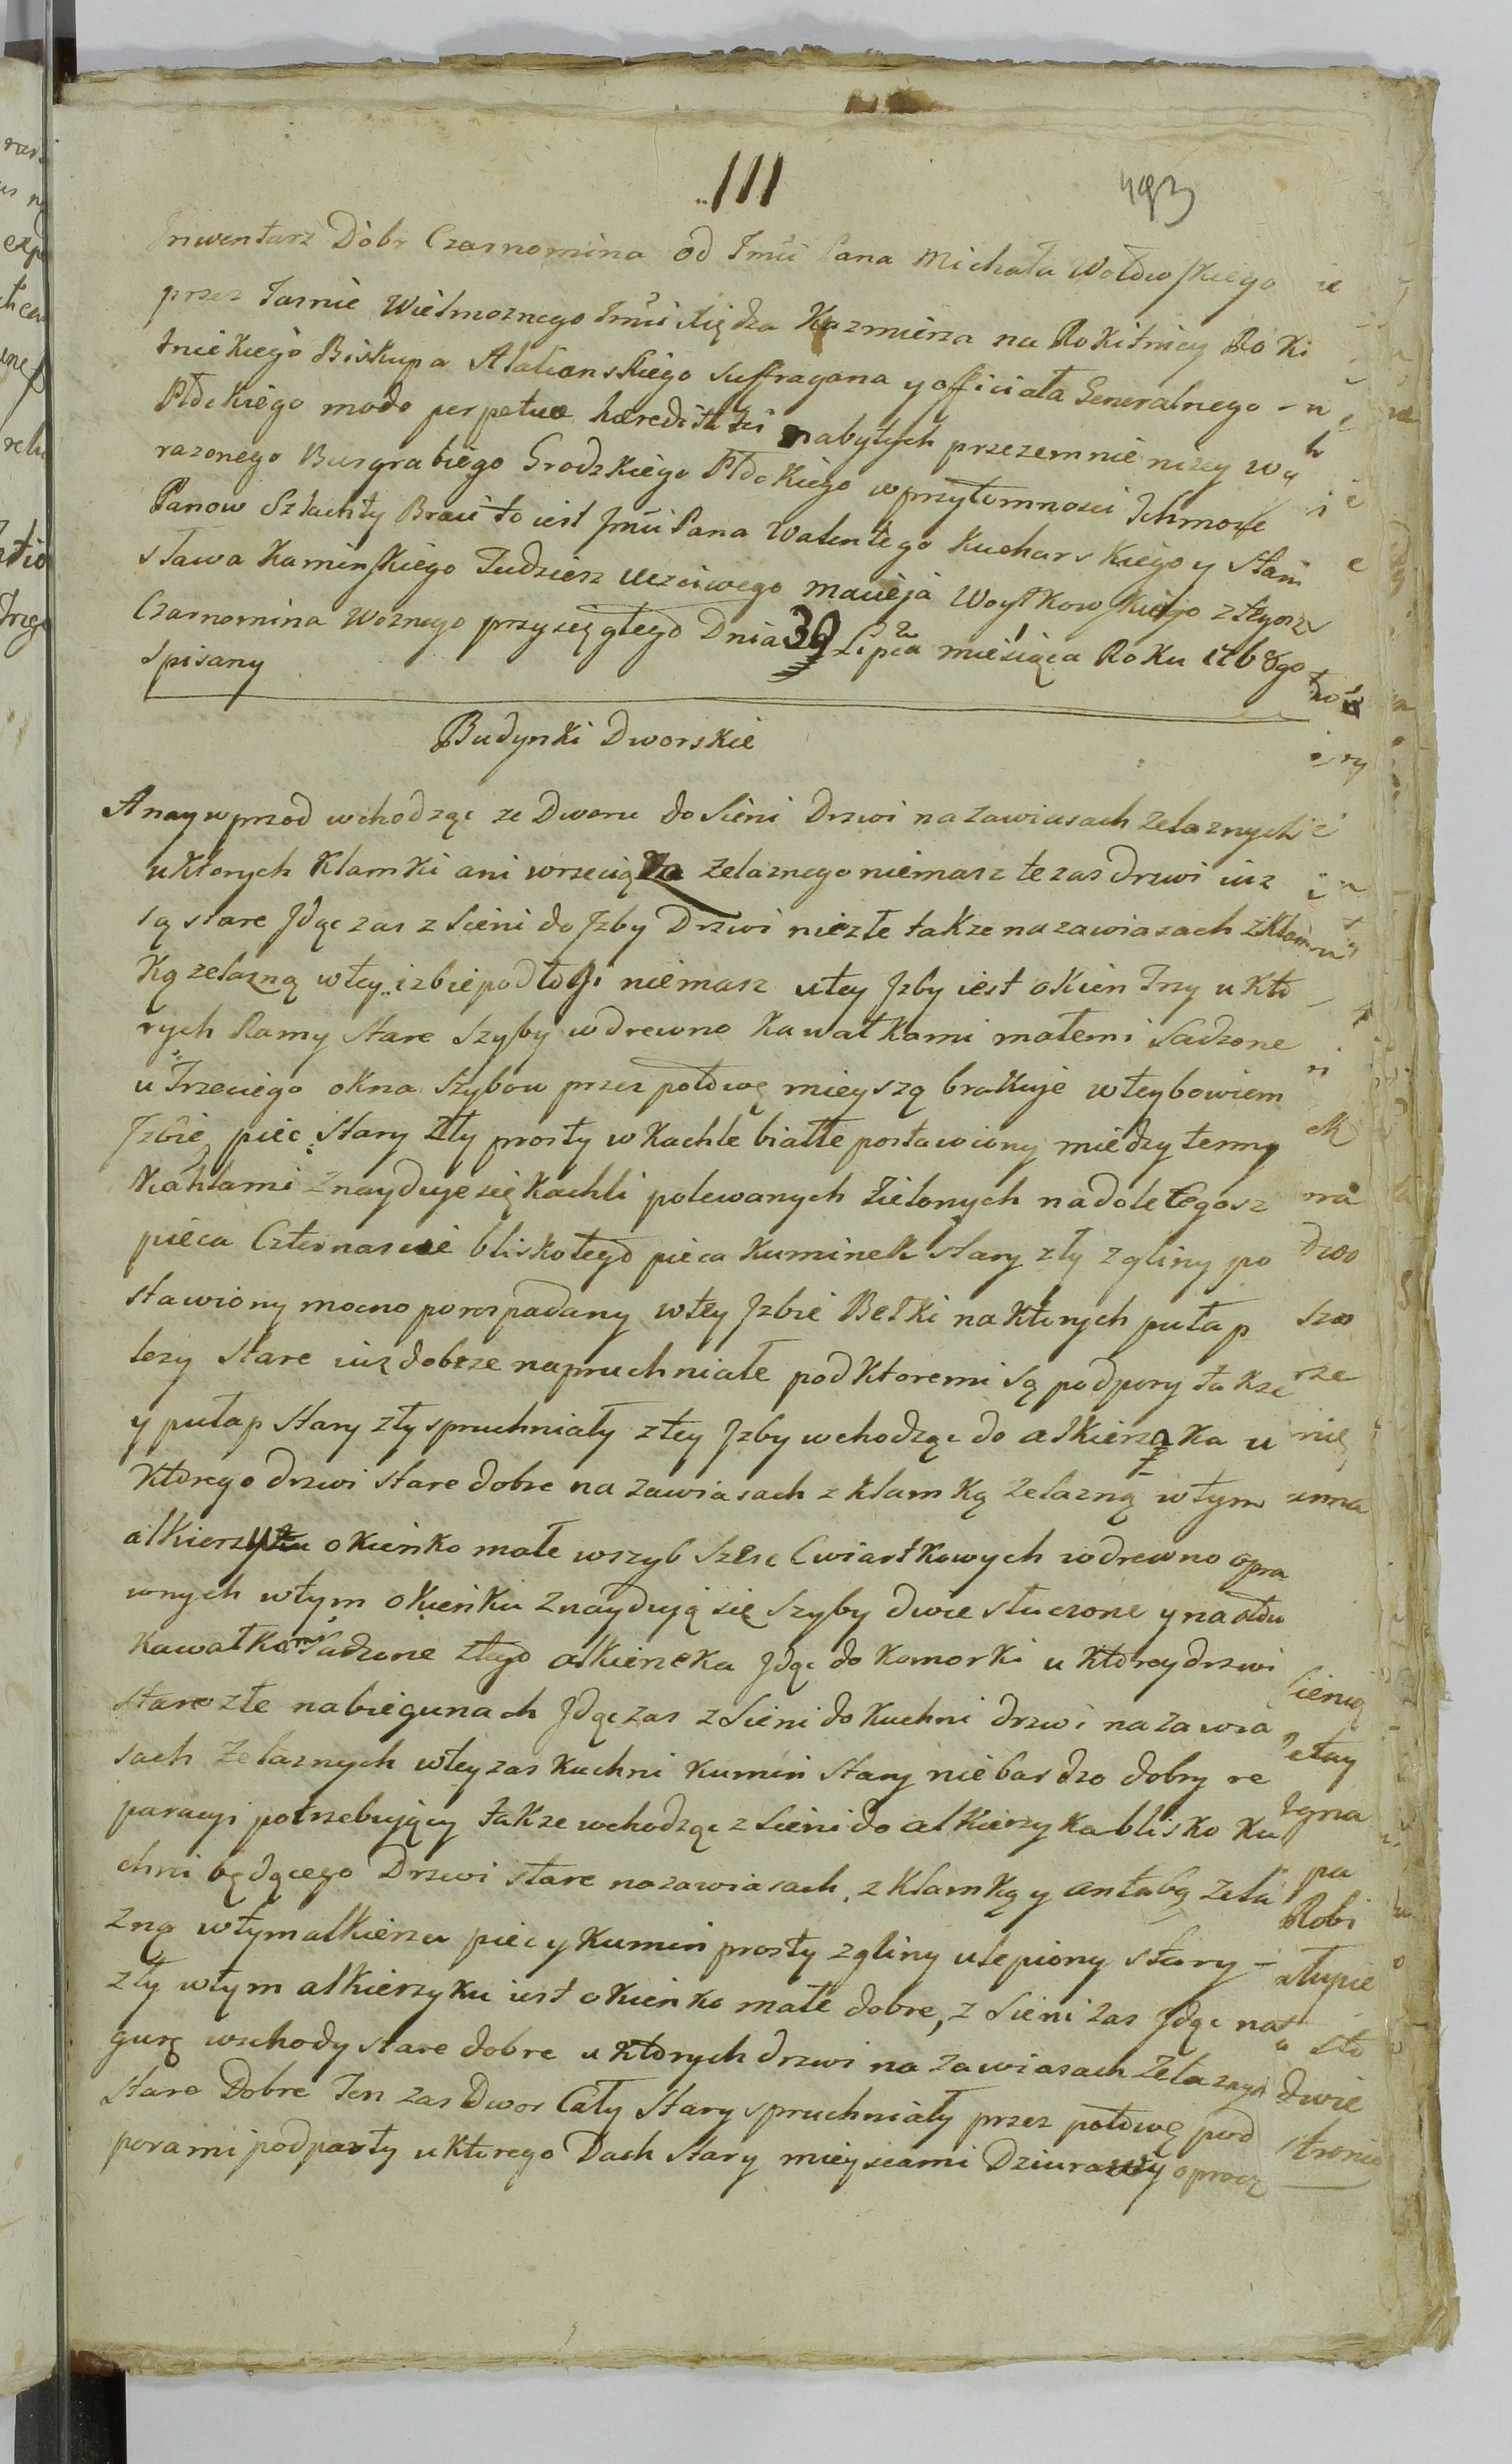 III
493
Jnwentarz Dobr Czarnomina od Jmci Pana Michała Wołowskiego
przez Jasnie Wielmoznego Jmci Xiędza Kazmierza na Rokitnicy Roki
tnickiego Biskupa Alalianskiego Suffragana y officiała Generalnego –
Płockiego modo perpetuæ hæreditatis nabytych przezemnie nizey wy
razonego Burgrabiego Grodzkiego Płockiego w przytomnosci Ichmow
Panow Szlachty Braci to iest Jmci Pana Walentego Kucharskiego y Stani
sława Kaminskiego Tudziesz Uczciwego Macieja Woytkowskiego z tegosz
Czarnomina Woznego przysięgłego Dnia 30 Lipca miesiąca Roku 1768go
spisany
Budynki Dworskie
A naywprzod wchodząc ze Dworu do Sieni Drzwi na zawiasach zelaznych
u ktorych Klamki ani wrzeciądza zelaznego niemasz te zas drzwi iuz
są stare Jdąc zas z Sieni do Jzby Drzwi niezłe takze na zawiasach z Klam
ką zelazną w tey izbie podłogi niemasz u tey Jzby iest okien Trzy u kto
rych Ramy stare Szyby w drewno kawałkami małemi Sadzone
u Trzeciego okna Szybow przez połowę mieyszą brakuje w tey bowiem
Jzbie piec stary zły prosty w Kachle białe postawiony miedzy temy
Kachlami znayduje się Kachli polewanych zielonych na dole tegosz
pieca Czternascie blisko tego pieca Kuminek stary zły z gliny po
stawiony mocno porozpadany w tey Jzbie Belki na ktorych pułap
lezy stare iuz dobrze napruchniałe pod ktoremi są podpory takze
y pułap stary zły spruchniały z tey Jzby wchodząc do alkierzyka u
ktorego drzwi stare dobre na zawiasach z klamką zelazną w tym
alkierzyku okienko małe w szyb Szesc Cwiartkowych w drewno opra
wnych w tym okienku znaydują się Szyby dwie stłuczone y na ołow
kawałkami sadzone z tego alkierzyka Jdąc do komorki u ktorey drzwi
stare złe na biegunach Jdąc zas z Sieni do Kuchni drzwi na zawia
sach zelaznych w tey zas Kuchni kumin stary nie bardzo dobry re
paracyi potrzebujący takze wchodząc z Sieni do alkierzyka blisko Ku
chni będącego Drzwi stare na zawiasach z klamką y antabą zela
zną w tym alkierzu piec y Kumin prosty z gliny ulepiony stary –
zły w tym alkierzyku iest okienko małe dobre, z Sieni zas Jdąc na
gurę wschody stare dobre u ktorych drzwi na zawiasach zelaznych
stare Dobre Ten zas Dwor Cały stary spruchniały przez połowę pod
porami podparty u ktorego Dach stary mieyscami Dziurawy oprocz